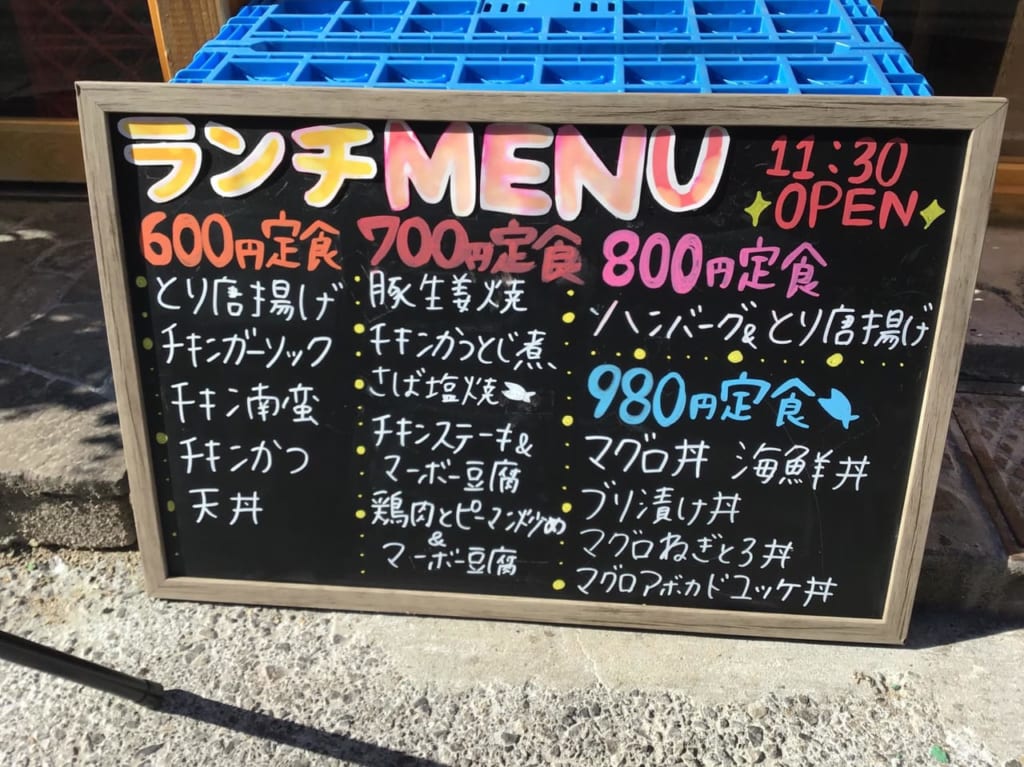 ランチMENU
11:30
OPEN
600円定食
とり唐揚げ
チキンガーリック
チキン南蛮
チキンかつ
天丼
700円定食
豚生姜焼
チキンかつとじ煮
さば塩焼
チキンステーキ&
マーボー豆腐
鶏肉とピーマン炒め
&
マーボー豆腐
800円定食
ハンバーグ&とり唐揚げ
980円定食
マグロ丼 海鮮丼
ブリ漬け丼
マグロねぎとろ丼
マグロアボカドユッケ丼